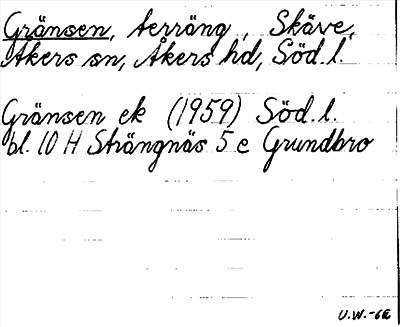 Gränsen, terräng, Skäve,
Åkers sn, Åkers hd, Söd. l.
Gränsen ek (1959) Söd. l.
bl. 10 H Strängnäs 5 e Grundbro
U.W.-62